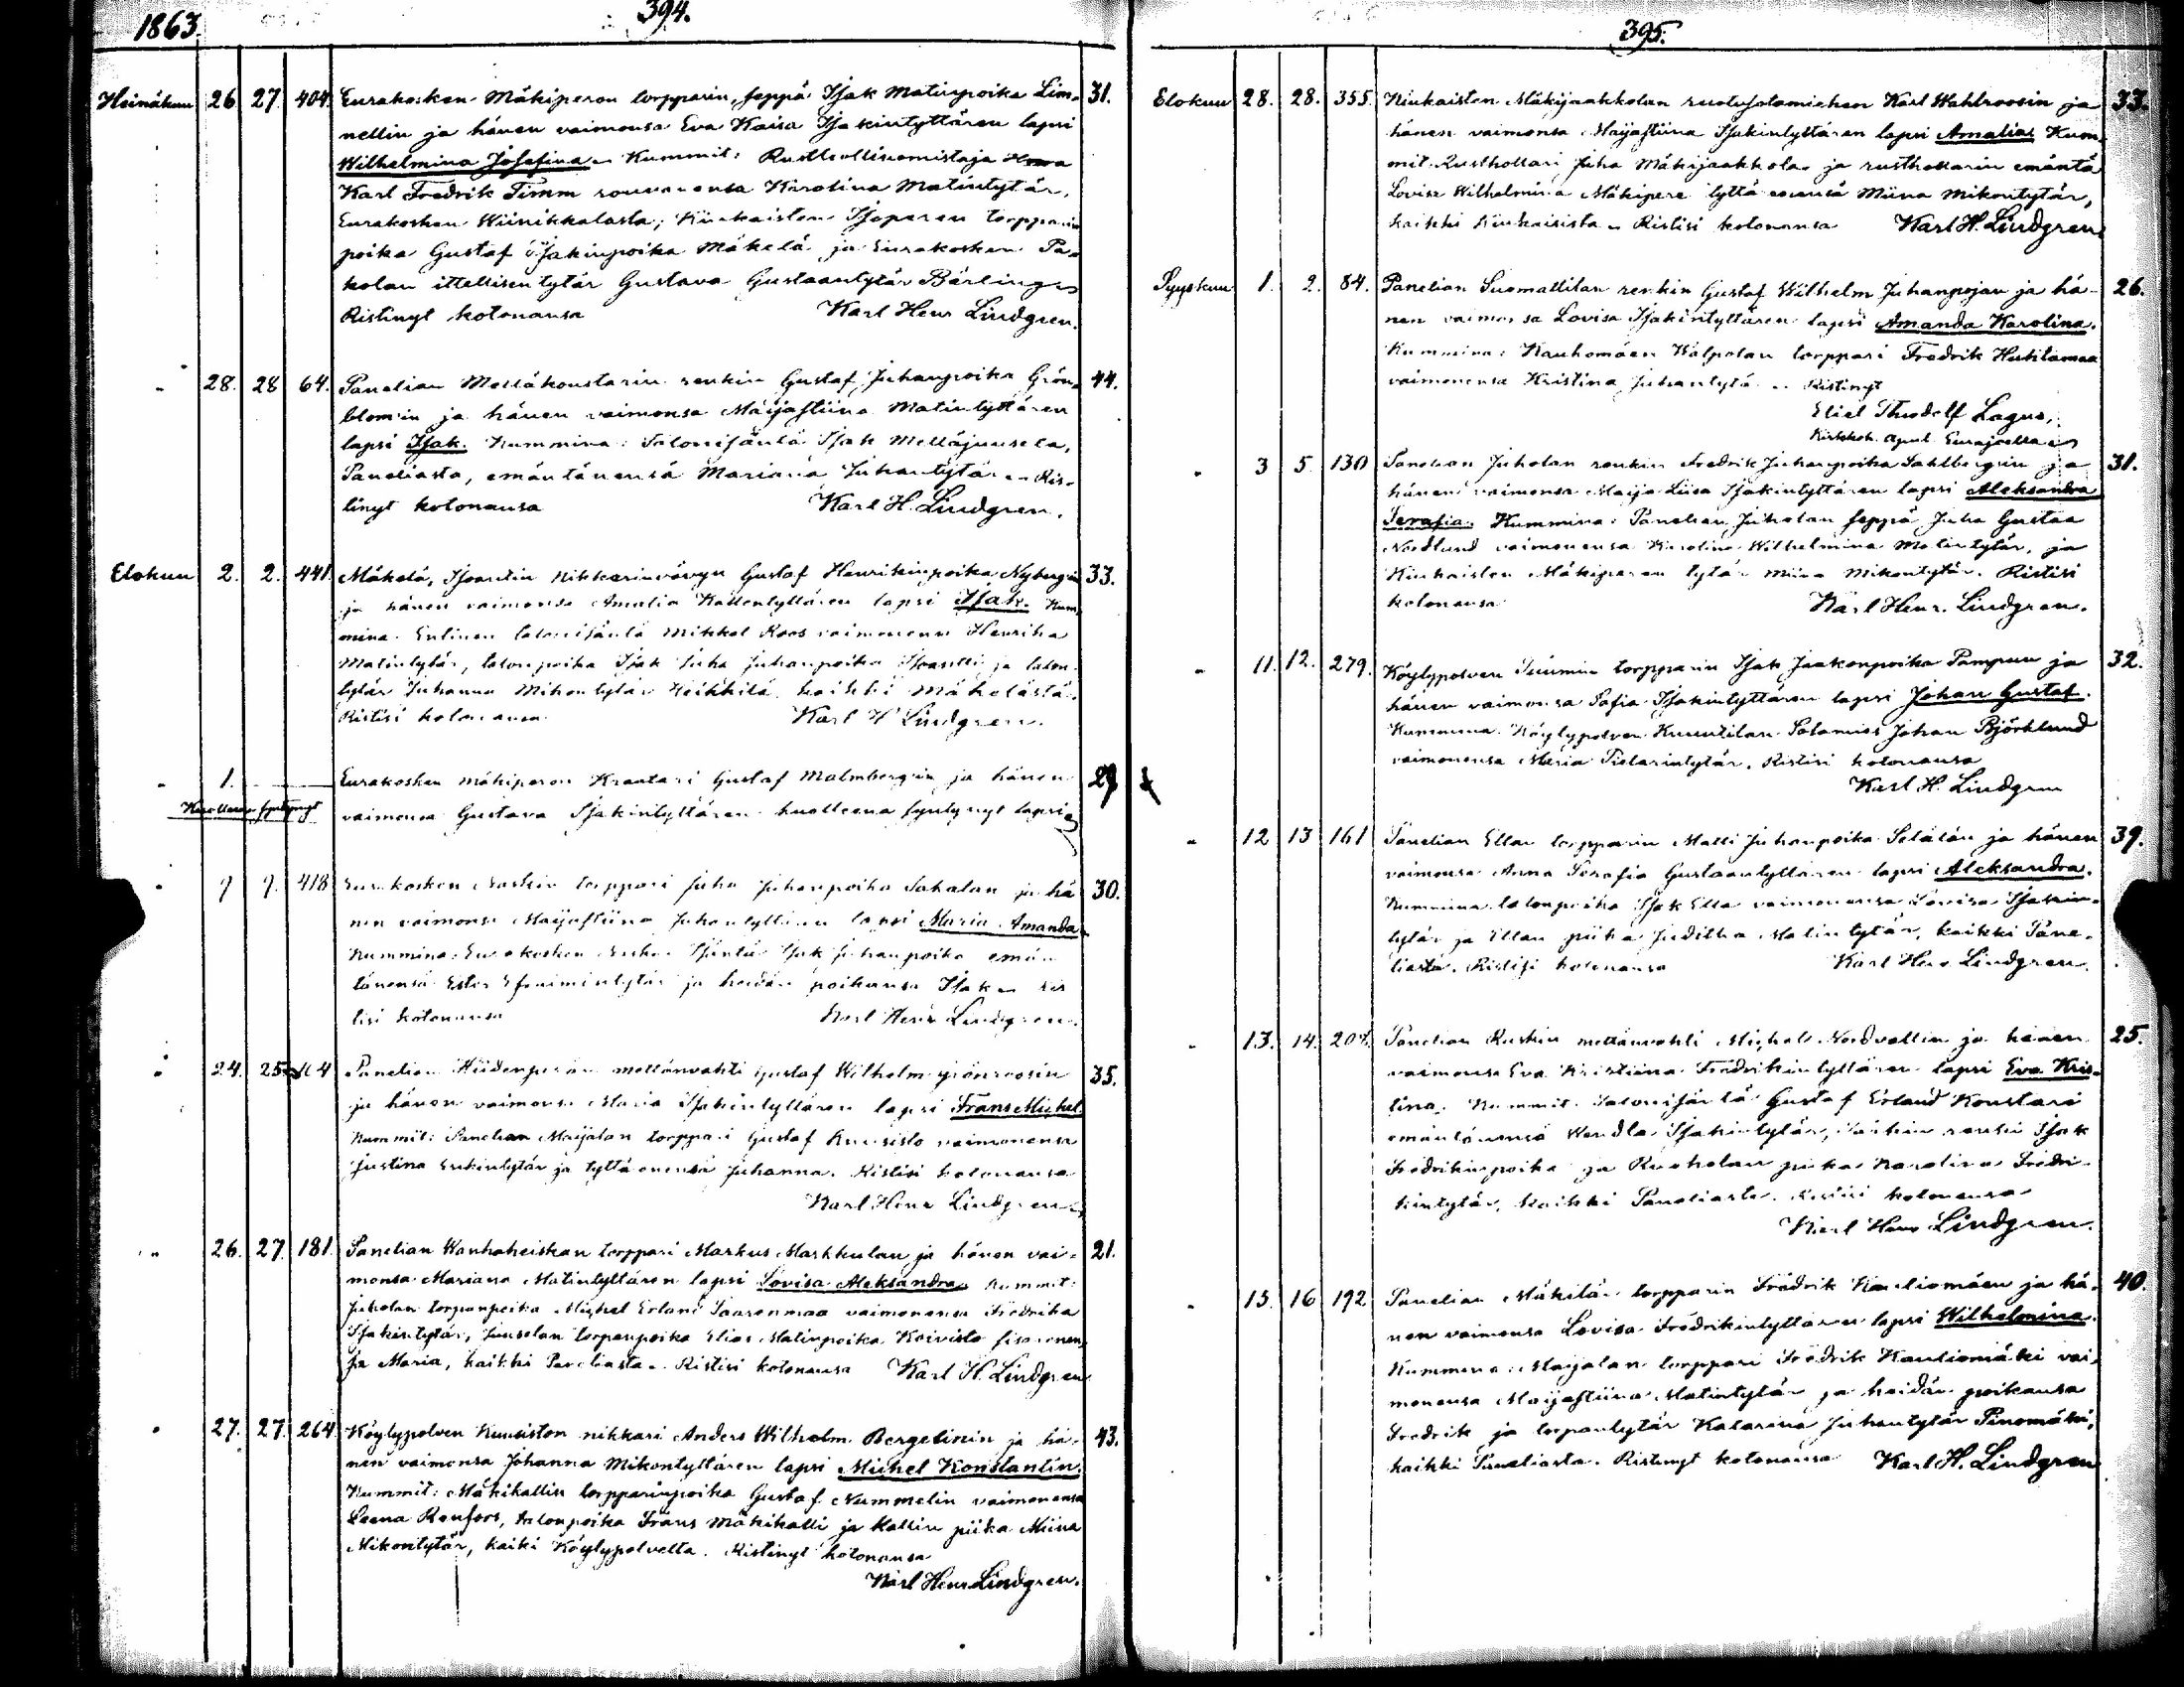 1863.
394.
Heinäkuu 26 27. 404. Eurakosken Mäkiperon torpparin, seppä Isak Matinpoika Lim- 31.
nellin ja hänen vaimonsa Eva Kaisa Isakintyttären lapsi
Wilhelmina Josefina. Kummit: Rusthollinomistaja Herra
Karl Fredrik Timm rouvanensa Karolina Matintytär,
Eurakosken Wiinikkalasta; Kiukaisten torpparin
poika Gustaf Isakinpoika Mäkelä ja Eurakosken Pa-
kolan ittellisentytär Gustava Gustaantytär Bärling
Ristinyt kotonansa Karl Henr Lindgren.
" 28. 28 64. Panelian Melläkonstarin renkin Gustaf Juhanpoika Grön- 44.
blomin ja hänen vaimonsa Maijastiina Matintyttären
lapsi Isak. Kummina: Talonisäntä Isak Melläjuusela,
Paneliasta, emäntänensä Mariana Juhantytär. Ris-
tinyt kotonansa Karl H. Lindgren.
Elokuu 2. 2. 441. Mäkelä, Nikkarinvävyn Gustaf Henrikinpoika Nybergin 33.
ja hänen vaimonsa Amalia Kallentyttären lapsi Isak. Kum-
mina. Entinen talonisäntä Mikkel Roos vaimonensa Henrika
Matintytär, talonpoika Isak Juha Juhanpoika ja talon-
tytär Juhanna Mikontytär Heikkilä kaikki Mäkelästä.
Ristisi kotonansa Karl H Lindgren.
" 1. Eurakosken Mäkiperon Krantari Gustaf Malmbergin ja hänen 29
Kuolleena syntynyt vaimonsa Gustava Isakintyttären kuolleena syntynyt lapsi
" 7 7. 418 Eurakosken torppari Juha Juhanpoika Sahalan ja hä- 30.
nen vaimonsa Maijastiina Juhantyttären lapsi Maria Amanda
Kummina: Eurakosken Isäntä Isak Juhanpoika emän-
tänensä Ester Efraimintytär ja heidän poikansa Isak. Ris
tisi kotonansa Karl Henr Lindgren.
" 24. 25. 104 Panelian Hiidenperän mettänvahti Gustaf Wilhelm Grönroosin 35.
ja hänen vaimonsa Maria Isakintyttären lapsi Frans Michel.
Kummit: Panelian Maijalan torppari Gustaf Kuusisto vaimonensa
Justina Erikintytär ja tyttärenensä Juhanna. Ristisi kotonansa
Karl Henr Lindgren
" 26. 27. 181. Panelian Wanhaheiskan torppari Markus Markkulan ja hänen vai- 21.
monsa Mariana Matintyttären lapsi Lovisa Aleksandra. Kummit:
Juholan torpanpoika Michel Erland Saarenmaa vaimonensa Fredrika
Isakintytär, Juuselan torpanpoika Elias Matinpoika Koivisto sisaronen-
sa Maria, kaikki Paneliasta. Ristisi kotonansa Karl H. Lindgren
" 27. 27. 264 Köylypolven Kuusiston nikkari Anders Wilhelm Bergelinin ja hä- 43.
nen vaimonsa Johanna Mikontyttären lapsi Michel Konstantin.
Kummit: Mäkikallin torpparinpoika Gustaf Nummelin vaimonensa
Leena Renfors, talonpoika Frans Mäkikalli ja Kallin piika Miina
Mikontytär, kaiki Köylypolvelta. Ristinyt kotonansa
Karl Henr Lindgren.
395.
Elokuu 28. 28. 355. Kiukaisten Mäkijaakkolan ruotusotamiehen Karl Wahlroosin ja 33.
hänen vaimonsa Maijastiina Isakintyttären lapsi Amalia. Kum-
mit. Rusthollari Juha Mäkijaakkola ja rusthollarin emäntä
Lovisa Wilhelmina Mäkipere tyttärenensä Miina Mikontytär,
kaikki Kiukaisista. Ristisi kotonansa Karl H. Lindgren
Syyskuu 1. 2. 84. Panelian Suomallilan renkin Gustaf Wilhelm Juhanpojan ja hä- 26.
nen vaimonsa Lovisa Isakintyttären lapsi Amanda Karolina.
Kummina: Kauhomäen Walpolan torppari Fredrik Huhtamaa
vaimonensa Kristina Juhantytär. Ristinyt
Eliel Thudolf Lagus,
Kirkkoh. apul. Eurajoella
" 3 5. 130 Panelian Juholan renkin Fredrik Juhanpoika Sahlbergin ja 31.
hänen vaimonsa Maija Liisa Isakintyttären lapsi Aleksandra
Serafia. Kummina: Panelian Juholan seppä Juha Gustaa
Nordlund vaimonensa Karolina Wilhelmina Matintytär, ja
Kiukaisten Mäkiperen tytär Miina Mikontytär. Ristisi
kotonansa Karl Henr. Lindgren.
" 11. 12. 279. Köylypolven torpparin Isak Jaakonpoika Pampun ja 32.
hänen vaimonsa Sofia Isakintyttären lapsi Johan Gustaf.
Kummina. Köylypolven Kuuttilan Sotamies Johan Björklund
vaimonensa Maria Ristisi kotonansa
Karl H. Lindgren
" 12 13 161 Panelian Ellan torpparin Matti Juhanpoika Setälän ja hänen 39.
vaimonsa Anna Serafia Gustaantyttären lapsi Aleksandra.
Kummina. talonpoika Isak Ella vaimonensa Lovisa Isakin-
tytär ja Ellan piika Juditha Matintytär, kaikki Pane-
liasta. Ristisi kotonansa Karl Henr Lindgren.
" 13. 14. 207. Panelian Ruskin mettänvahti Michel Nordvallin ja hänen 25.
vaimonsa Eva Kristiina Fredrikintyttären lapsi Eva Kris-
tina. Kummit. Talonisäntä Gustaf Erland Konstari
emäntänensä Wendla Isakintytär, renki Isak
Fredrikinpoika ja Ruoholan piika Karolina Fredri-
kintytär, kaikki Paneliasta. Ristisi kotonansa
Karl Henr Lindgren.
" 15. 16 192 Panelian Mäkilän torpparin Fredrik Kauliomäen ja hä- 40.
nen vaimonsa Lovisa Fredrikintyttären lapsi Wilhelmina.
Kummina: Maijalan torppari Fredrik Kauliomäki vai-
monensa Maijastiina Matintytär ja heidän poikansa
Fredrik ja torpantytär Katarina Juhantytär Pinomäki,
kaikki Paneliasta. Ristinyt kotonansa Karl H. Lindgren